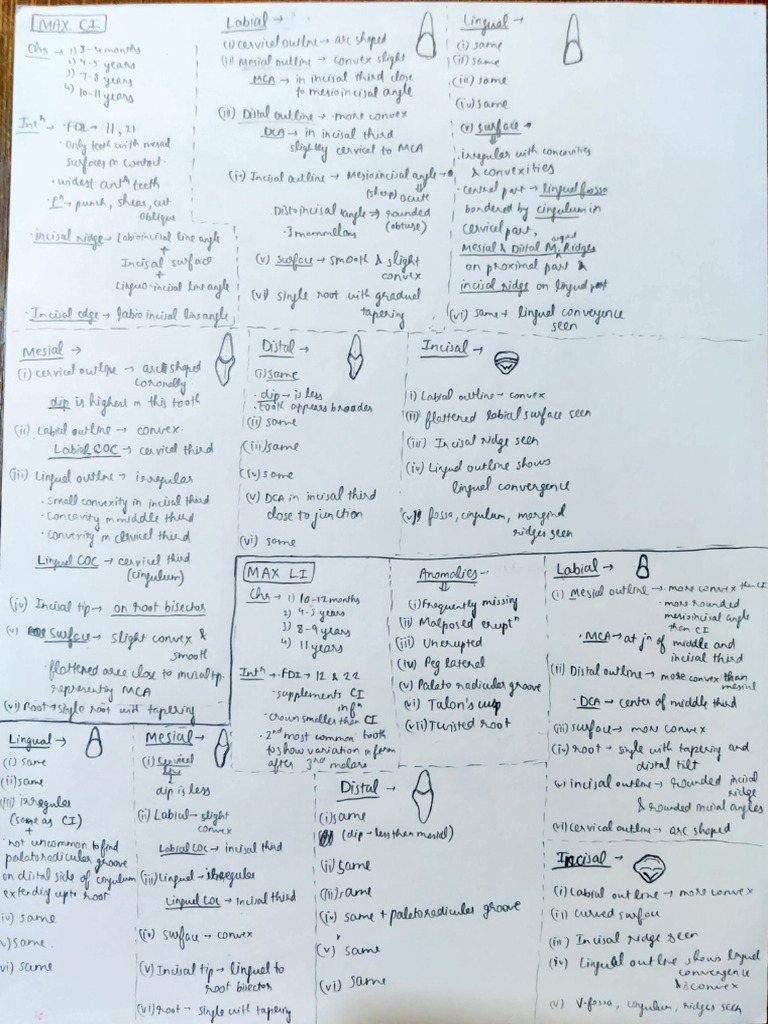 MAX. CI
Chr → 1) 3-4 months
2) 4-5 years
3) 7-8 years
4) 10-11 years
Intⁿ → • FDI → 11, 21
• only teeth with mesial
surfaces in contact.
• widest antʳ teeth
• fⁿ → punch, shear, cut
oblique
• incisal ridge → Labioincisal line angle
+
Incisal surface
+
Linguo-incisal line angle
• Incisal edge → labio incisal line angle
Labial →
(i) cervical outline → arc shaped
(ii) Mesial outline → convex slight
MCA → in incisal third close
to mesioincisal angle
(iii) Distal outline → more convex
DCA → in incisal third
slightly cervical to MCA
(iv) Incisal outline → Mesioincisal angle →
(sharp) acute
Distoincisal angle → rounded
(obtuse)
• 3 mammelons
(v) surface → smooth & slight
convex
(vi) single root with gradual
tapering
Lingual →
(i) same
(ii) same
(iii) same
(iv) same
(v) surface →
• irregular with concavities
& convexities
• central part → lingual fossa
bordered by cingulum in
cervical part,
Mesial & Distal M. Ridges
on proximal part &
incisal ridge on lingual part
(vi) same + lingual convergence
seen
Mesial →
(i) cervical outline → arc shaped
coronally
dip is highest in this tooth
(ii) Labial outline → convex.
Labial COC → cervical third
(iii) Lingual outline → irregular
• small convexity in incisal third
• Concavity in middle third
• Convexity in cervical third
Lingual COC → cervical third
(cingulum)
(iv) Incisal tip → on root bisector
(v) surface → slight convex &
smooth
• flattened area close to incisal tip.
representing MCA
(vi) Root → single root with tapering
Distal →
(i) same
• dip → is less
• tooth appears broader
(ii) same
(iii) same
(iv) same
(v) DCA in incisal third
close to junction
(vi) same
Incisal →
(i) Labial outline → convex
(ii) flattened labial surface seen
(iii) Incisal ridge seen
(iv) Lingual outline shows
lingual convergence
(v) fossa, cingulum, marginal
ridges seen
MAX LI
Chr → 1) 10-12 months
2) 4-5 years
3) 8-9 years
4) 11 years
Intⁿ → • FDI → 12 & 22
• supplements CI
in fⁿ
• crown smaller than CI
• 2nd most common tooth
to show variation in form
after 3rd molars
Anomalies →
(i) Frequently missing
(ii) Malposed eruptⁿ
(iii) Unerupted
(iv) Peg lateral
(v) Palato radicular groove
(vi) Talon's cusp
(vii) Twisted root
Labial →
(i) Mesial outline → • more convex than CI
• more rounded
mesioincisal angle
than CI
• MCA → at jⁿ of middle and
incisal third
(ii) Distal outline → more convex than
mesial
• DCA → center of middle third
(iii) surface → more convex
(iv) root → single with tapering and
distal tilt
(v) incisal outline → rounded incisal
ridge
& rounded incisal angles
(vi) cervical outline → arc shaped
Lingual →
(i) same
(ii) same
(iii) irregular
(same as CI)
+
• not uncommon to find
palatoradicular groove
on distal side of cingulum
extending upto root
(iv) same
(v) same.
(vi) same
Mesial →
(i) Cervical
line
dip is less
(ii) Labial → slight
convex
Labial COC → incisal third
(iii) Lingual → irregular
Lingual COC → Incisal third
(iv) surface → convex
(v) Incisal tip → lingual to
root bisector
(vi) root → single with tapering
Distal →
(i) same
(dip → less than mesial)
(ii) same
(iii) same
(iv) same + palatoradicular groove
(v) same
(vi) same
Incisal →
(i) Labial outline → more convex
(ii) curved surface
(iii) Incisal ridge seen
(iv) Lingual outline shows lingual
convergence
& convex
(v) V-fossa, cingulum, ridges seen